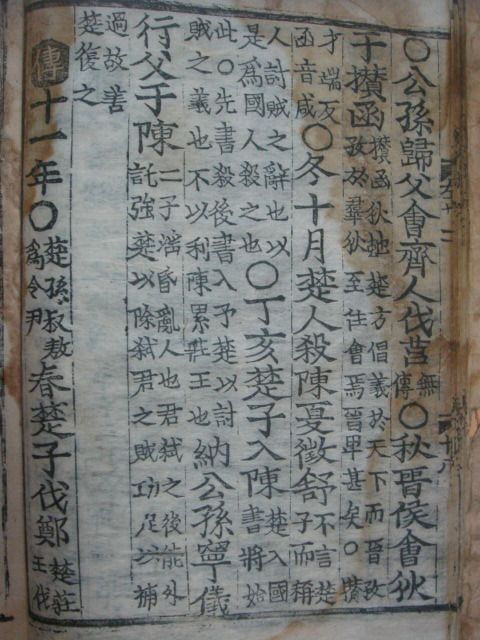 ○公孫歸父會齊人伐莒無傳○秋晉侯會狄
于攅函攅函狄地楚方倡義於天下而晉孜孜於羣狄至徃會焉晉卑甚矣○攅
才端反函音咸○冬十月楚人殺陳夏徵舒不言楚子而稱
人討賊之辭也以是爲國人殺之也○丁亥楚子入陳楚入國書將始
此○先書殺後書入予楚以討賊之義也不以利陳累莊王也納公孫寧儀
行父于陳二子淫昏亂人也君弑之後能外託強楚以除弑君之賊功足以補
過故善楚復之
傳十一年○楚孫叔敖爲令尹春楚子伐鄭楚莊王伐